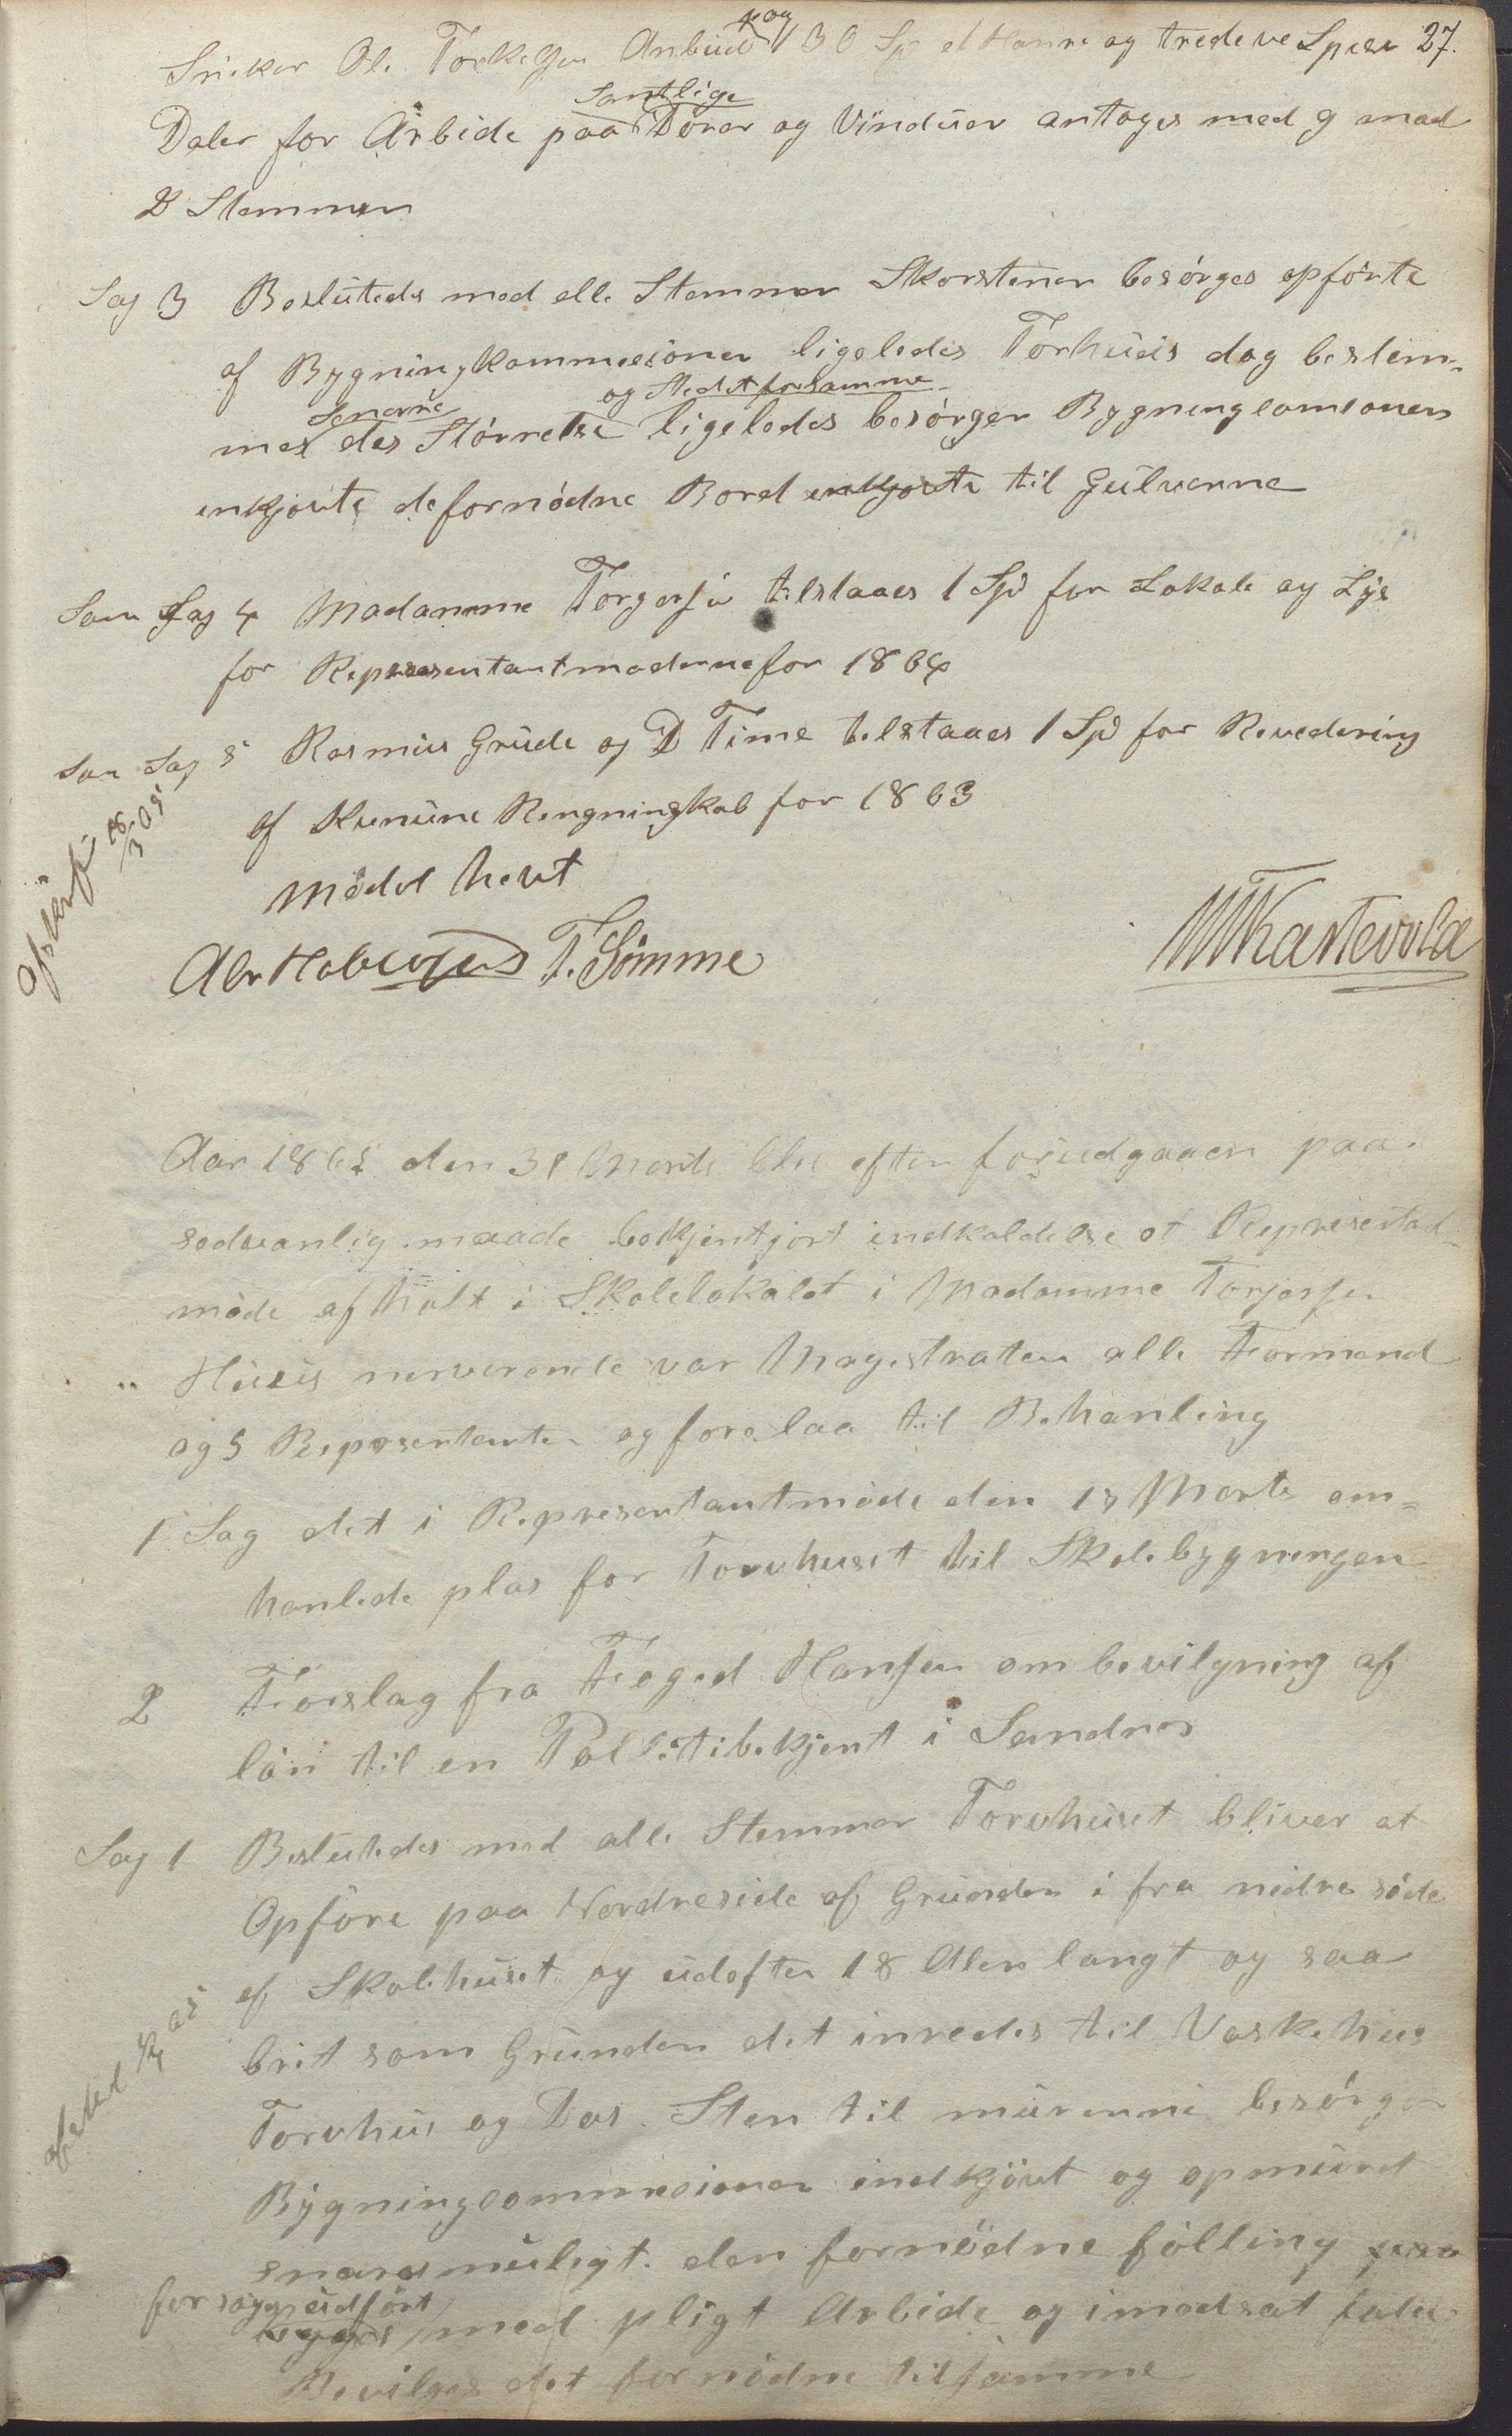 27.
Sneker Ole Torkelsen Anbud paa 130 Sp et Hunre og tredeve Spesi
Daler for Arbide paa Samtlige Dører og Vinduer antages med 9 mod
2 Stemmer
Sag 3 Besluteds med alle Stemmer Skorstener besørges opførte
af Bygningkommesionen ligeledes Torhuus dog bestem-
mes Senere des Størrelse og Stedet for samme ligeledes besørger Bygningcomionen
inkjøvte de fornødne Bord inkjøvte til Gulvenne
Sam Sag 4 Madamme Torgersen tilstaaes 1 Spd for Lokale og Lys
for Representantmøderne for 1864
Sam Sag 5 Rasmus Grude og D Time tilstaaes 1 Spd for Revedering
af Kumune Rengningskab for 1863
18/3 65
mødet hevt
Abr Haboesen T. Sømme
Aar 1865 den 31 Marts blev efter forudgaaen paa
sedvanlig maade bekjentgjort indkaldelse et Represestad
møde afholt i Skolelokalet i Madamme Torjersen
Huuus nerverende var Magistraten alle Formend
og 5 Representanter og forelaa til Behanling
1 Sag det i Representantmøde den 18 Marts om-
hanlede plas for Torvhuset til Skolebygningen
2 Forslag fra Foged Hansen om bevilgning af
løn til en Pollitibekjent i Sandnes
Sag 1 Besluttedes med alle Stemmer Torvhuset bliver at
Opføre paa Nordreside af Grunden i fra nedre side
af Skolehuset og udefter 18 Alen langt og saa
bret som Grunden det inredes til Vaskehus
Torvhus og Das. Sten til murenne besørger
Bygningcommesionen indkjøvt og opmuret
snarest muligt. den fornødne følling paa
forsøges udført bygges med pligt Arbide og i modsat falde
Bevilges det fornødne til samme